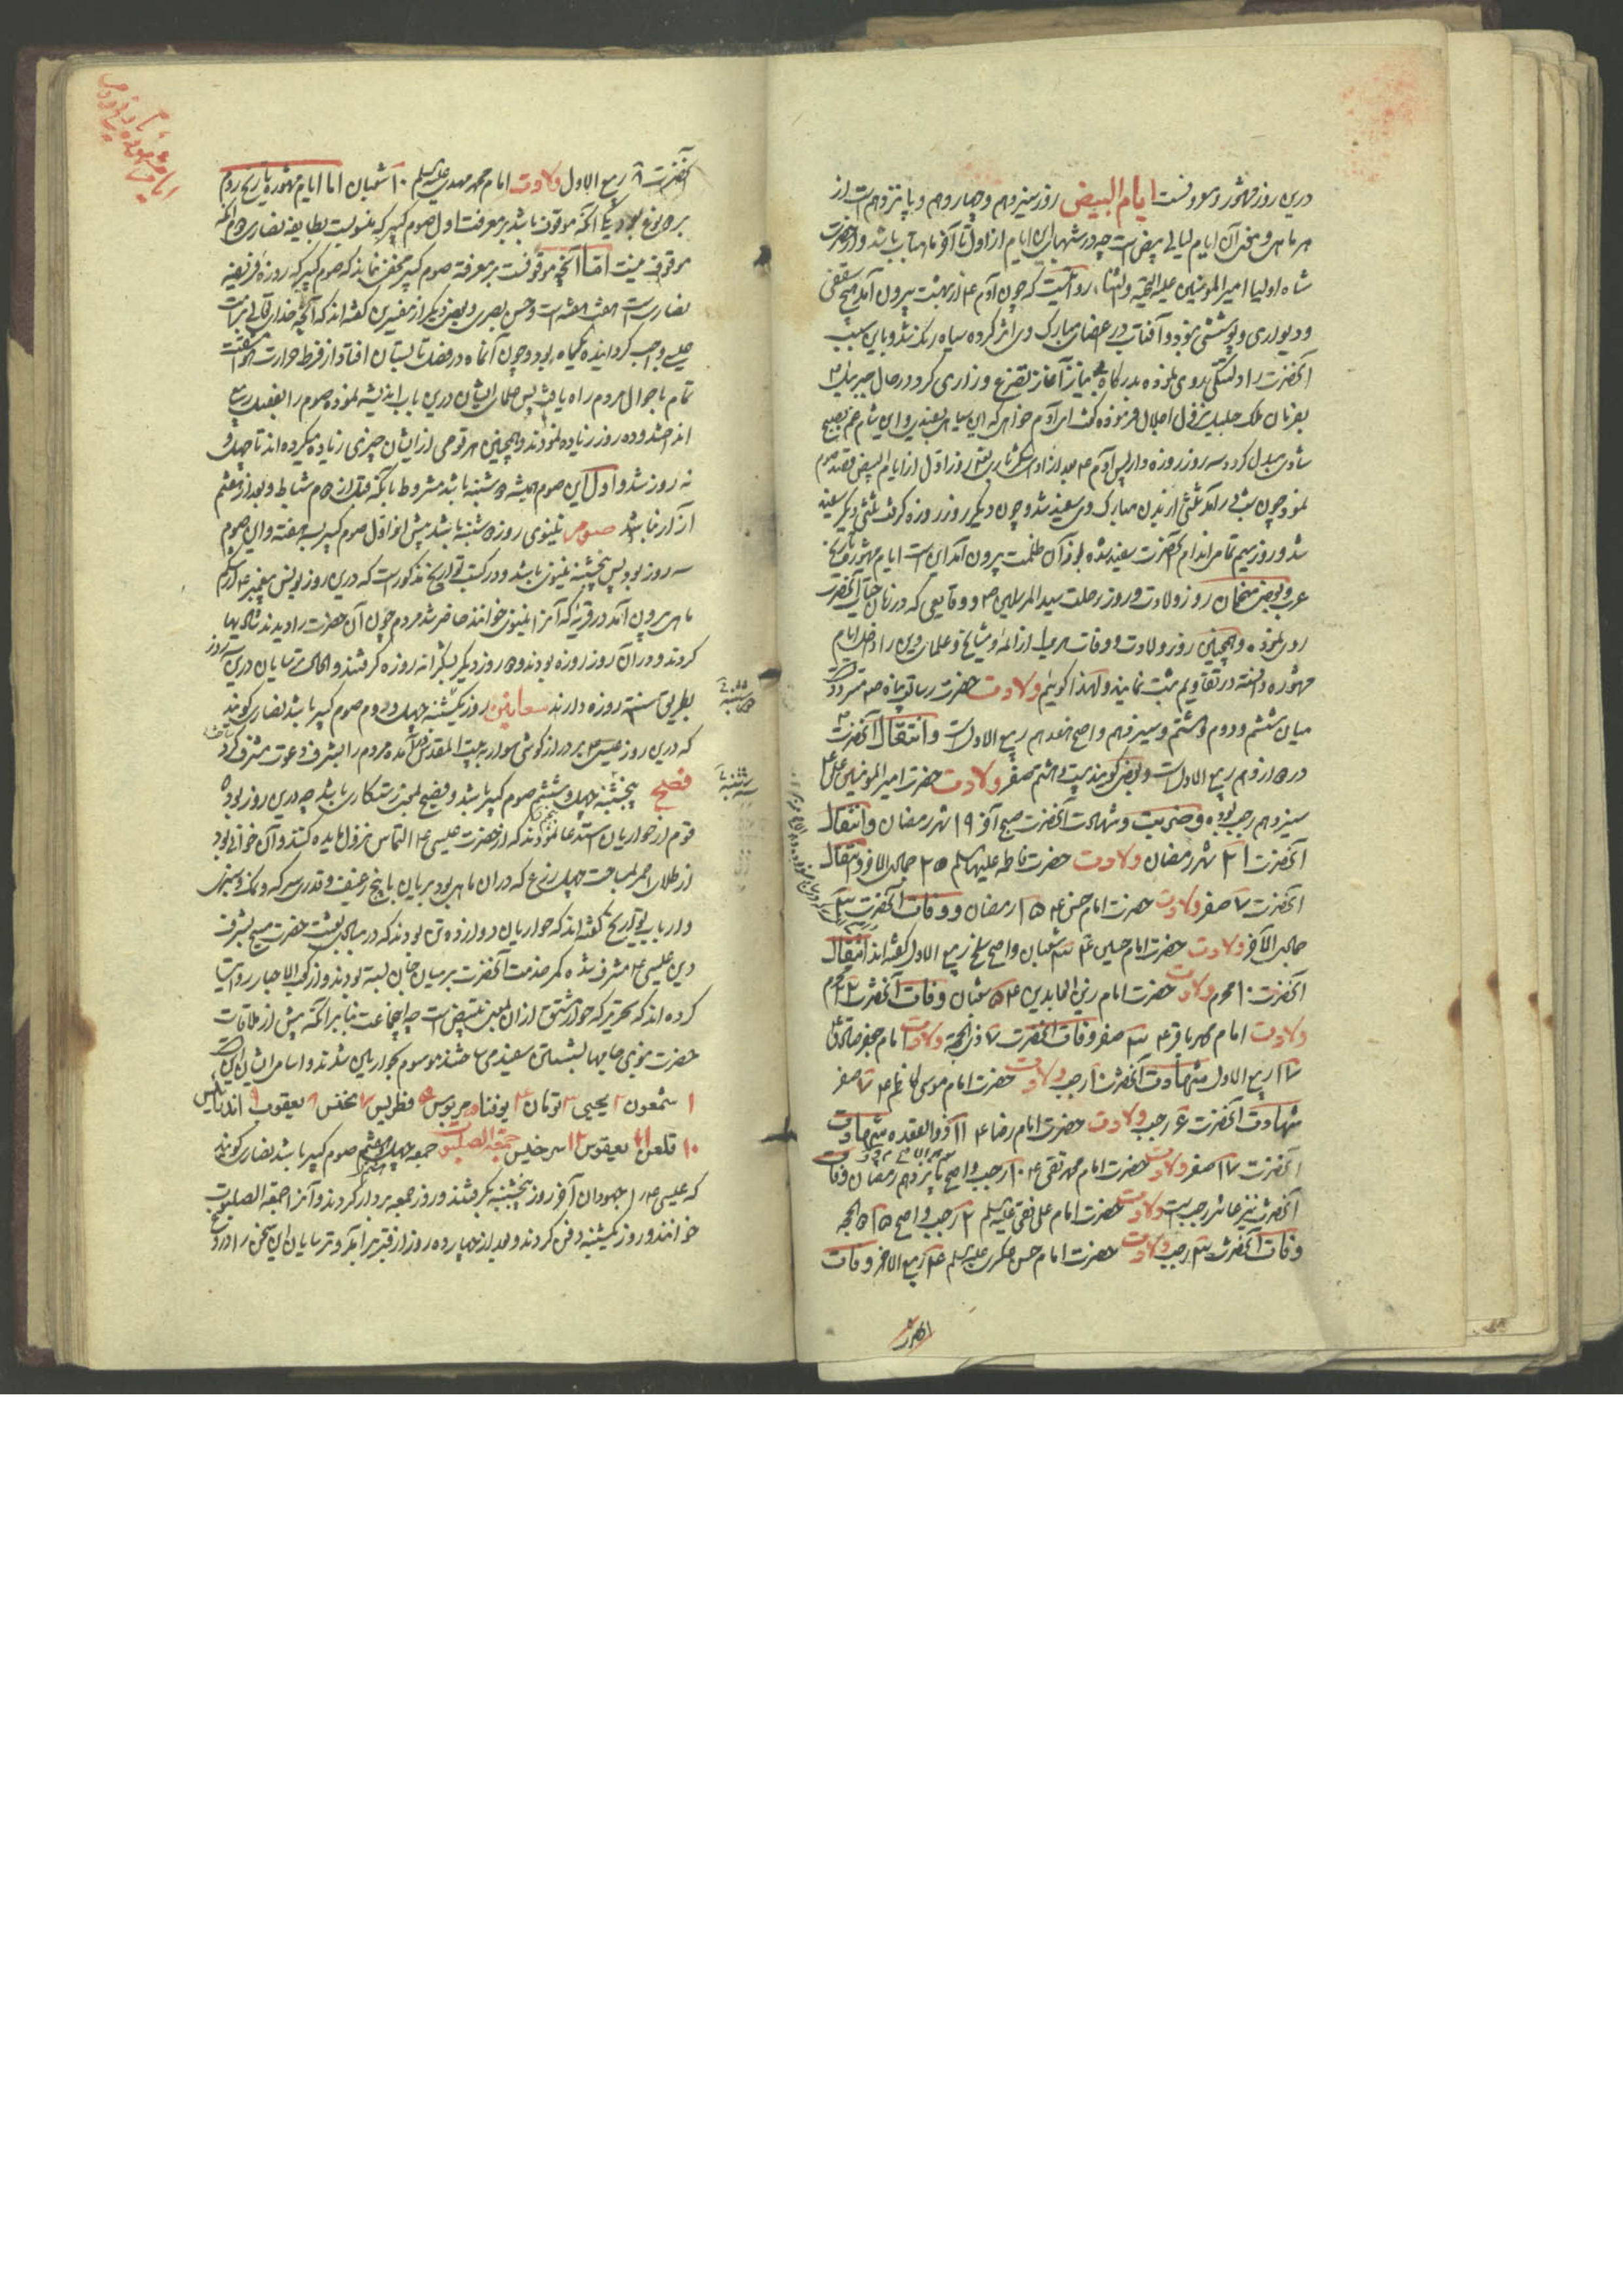 درین روز مشهور و معروفست ایام البیض روز سیزدهم و چهاردهم و پانزدهم است از
هر ماهی و معنی آن ایام لیالی بیض است چه در شبهای این ایام از اول تا آخر ماهتاب باشد و از حضرت
شاه اولیا امیر المؤمنین علیه التحیه والثنا روایتست که چون آدم ع از بهشت بیرون آمد هیچ سقفی
و دیواری و پوششی نبود و آفتاب در اعضای مبارک وی اثر کرده سیاه رنگ شد و باین سبب
آنحضرت را دلتنگی روی نموده بدرگاه بی نیاز آغاز تضرع و زاری کرد در حال جبرئیل ع
بفرمان ملک جلیل نزول اجلال فرموده گفت ای آدم خواهی که این سیاهی بسفیدی و این شام غم بصبح
شادی مبدل گردد سه روز روزه دار پس آدم ع بعد از ادای شکر روز اول از ایام البیض قصد صوم
نمود چون شب در آمد ثلثی از بدن مبارک وی سفید شد و چون دیگر روز روزه گرفت ثلثی دیگر سفید
شد و روز سیم تمامی اندام آنحضرت سفید شده از آن ظلمت بیرون آمد این است ایام مشهوره تاریخ
عرب و بعضی منجمان روز ولادت و روز رحلت سید المرسلین ص و وقایعی که در زمان حیات آنحضرت
روی نموده و همچنین روز ولادت و وفات هر یک از ائمه و مشایخ و علمای دین را داخل ایام
مشهوره دانسته در تقاویم ثبت نمایند و لهذا گوئیم ولادت حضرت رسالت پناه ص متردد است
میان ششم و دوم و هشتم و سیزدهم و اصح هفدهم ربیع الاول است و انتقال آنحضرت
در دوازدهم ربیع الاول است و بعضی گویند بیست و هشتم صفر ولادت حضرت امیر المؤمنین علی ع
سیزدهم رجب بوده و ضربت و شهادت آنحضرت صبح آخر ۱۹ شهر رمضان و انتقال
آنحضرت ۲۱ شهر رمضان ولادت حضرت فاطمه علیها السلم ۲۵ جمادی الآخر و انتقال
آنحضرت ۷ صفر ولادت حضرت امام حسن ع ۱۵ رمضان و وفات آنحضرت
جمادی الآخر ولادت حضرت امام حسین ع ۳ شعبان و اصح سلخ ربیع الاول گفته اند انتقال
آنحضرت ۱۰ محرم ولادت حضرت امام زین العابدین ع ۵ شعبان وفات آنحضرت ۲۲ محرم
ولادت امام محمد باقر ع ۳ صفر وفات آنحضرت ۷ ذی الحجه ولادت امام جعفر صادق ع
۱۷ ربیع الاول شهادت آنحضرت ۱۰ رجب ولادت حضرت امام موسی کاظم ع ۷ صفر
شهادت آنحضرت ۶ رجب ولادت حضرت امام رضا ع ۱۱ ذوالقعده شهادت
آنحضرت ۱۷ صفر ولادت حضرت امام محمد تقی ع ۱۰ رجب و اصح پانزدهم رمضان وفات
آنحضرت نیز عاشر رجب است ولادت حضرت امام علی نقی علیه السلم ۲ رجب و اصح ۱۵ ذی الحجه
وفات آنحضرت ۳ رجب ولادت حضرت امام حسن عسکری علیه السلم ۴ ربیع الآخر وفات
آنحضرت
آنحضرت ۸ ربیع الاول ولادت امام محمد مهدی علیه السلم ۱۰ شعبان اما ایام مشهوره تاریخ روم
بر دو نوع بود یکی آنکه موقوف باشد بر معرفت اول صوم کبیر که منسوبست بطایفه نصاری دوم آنکه
موقوف نیست اما آنچه موقوفست بر معرفة صوم کبیر مخفی نماند که صوم کبیر که روزه فریضه
نصاریست هفت هفته است و حسن بصری و بعضی دیگر از مفسرین گفته اند که آنچه خدای تعالی بر امت
عیسی واجب گردانیده یکماه بود و چون آنماه در فصل تابستان افتاد از فرط حرارت هوا مشقت
تمام باحوال مردم راه یافت پس علمای ایشان درین باب اندیشه نموده صوم را بفصل ربیع
انداختند و ده روز زیاده نمودند و همچنین هر قومی از ایشان چیزی زیاده میکرده اند تا چهل و
نه روز شد و اول این صوم همیشه دوشنبه باشد مشروط بآنکه قبل از دوم شباط و بعد از هشتم
آزار نباشد صوم نینوی روز دوشنبه باشد پیش از اول صوم کبیر بسه هفته و این صوم
سه روز بود پس پنجشنبه نینوی باشد و در کتب تواریخ مذکور است که درین روز یونس پیغمبر ع از شکم
ماهی بیرون آمد در قریه که آنرا نینوی خوانند حاضر شد مردم چون آن حضرت را دیدند شادیها
کردند و در آن روز روزه بودند و دو روز دیگر بشکرانه روزه گرفتند و الحال ترسایان درین سه روز
بطریق سنت روزه دارند سعانین روز یکشنبه چهل و دوم صوم کبیر باشد نصاری گویند
که درین روز عیسی ع بر دراز گوشی سوار به بیت المقدس آمده مردم را بشرف دعوت مشرف کرد
فصح پنجشنبه چهل و ششم صوم کبیر باشد و فصح بمعنی رستگاری باشد چه درین روز بود که
قوم از حواریان استدعا نمودند که از حضرت عیسی ع التماس نزول مایده کنند و آن خوانی بود
از طلای احمر بمساحت چهل ذرع که در آن ماهی بود بریان با پنج رغیف و قدری سرکه و نمک و سبزی
و ارباب تواریخ گفته اند که حواریان دوازده تن بودند که در مبادی بعثت حضرت مسیح بشرف
دین عیسی ع مشرف شده کمر خدمت آنحضرت بر میان جان بسته بودند و از کعب الاحبار روایت
کرده اند که تحریر که حوار مشتق از آن بمعنی تبییض است چه ایجماعت بنا بر آنکه پیش از ملاقات
حضرت نبوی جامها بشستن سفید می ساختند موسوم بحواریین شدند و اسامی ایشان این است
۱ شمعون ۲ یحیی ۳ تومان ۴ یوقنا ۵ مریوس ۶ فطریس ۷ نحنس ۸ یعقوب ۹ اندرابیس
۱۰ قلعن ۱۱ یعقوس ۱۲ سرخیس جمعة الصلبوت جمعه چهل و هفتم صوم کبیر باشد نصاری گویند
که عیسی ع را جهودان آخر روز پنجشنبه بگرفتند و روز جمعه بر دار کردند و آنرا جمعة الصلبوت
خوانند و روز یکشنبه دفن کردند و بعد از چهارده روز از قبر برآمد و ترسایان این سخن را دروغ